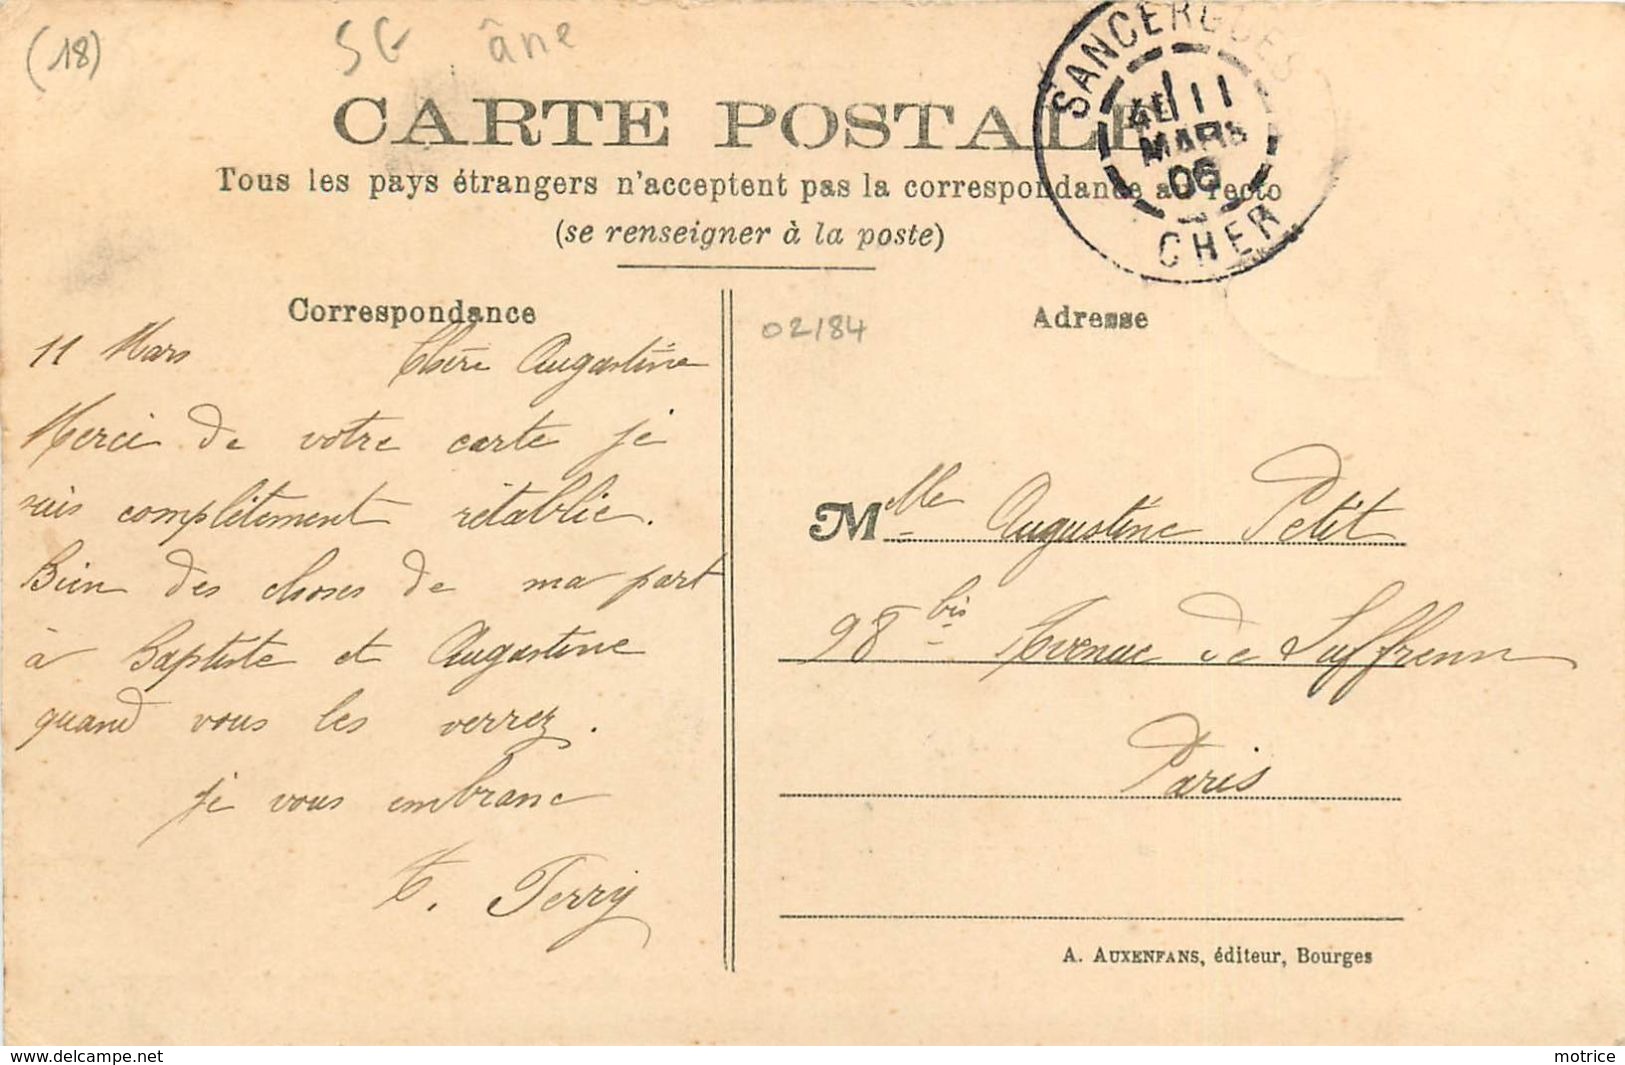 (18)
SG âne
CARTE POSTALE
SANCERGUES
4E 11
MARS
06
CHER
Tous les pays étrangers n'acceptent pas la correspondance au recto
(se renseigner à la poste)
Correspondance
11 Mars Chère Augustine
Merci de votre carte je
suis complètement rétablie.
Bien des choses de ma part
à Baptiste et Augustine
quand vous les verrez.
je vous embrasse
Terry
02184
Adresse
Melle Augustine Petit
98 bis Avenue de Suffrenn
Paris
A. AUXENFANS, éditeur, Bourges
www.delcampe.net
motrice